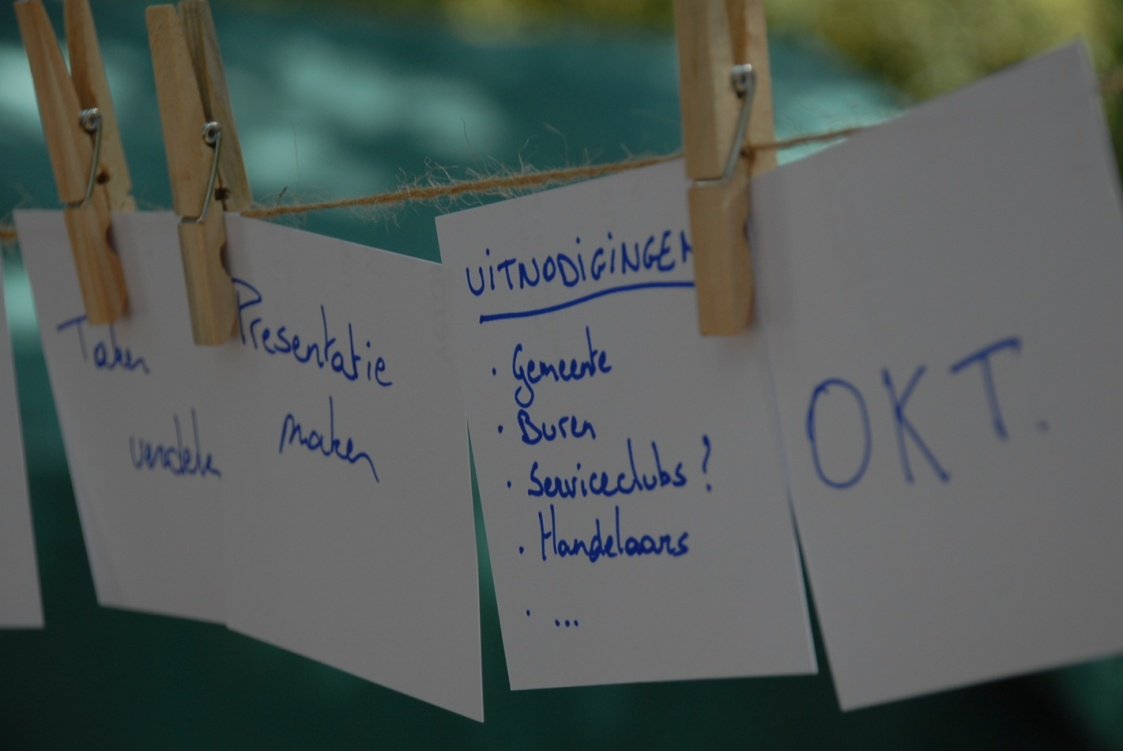 Taken
verdelen
Presentatie
maken
UITNODIGINGEN
· Gemeente
· Buren
· Serviceclubs ?
· Handelaars
· ...
OKT.